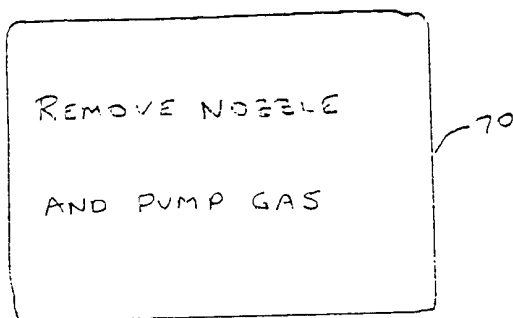 REMOVE NOZZLE
70
AND PUMP GAS